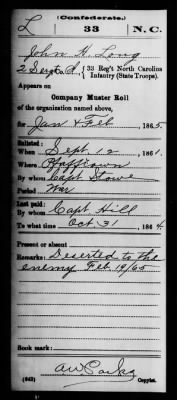 (Confederate.)
L 33 N.C.
John H. Long
2 Sergt, Co. A, 33 Reg't North Carolina
Infantry (State Troops).
Appears on
Company Muster Roll
of the organization named above,
for Jan & Feb, 1865.
Enlisted:
When Sept. 12, 1861.
Where Pfafftown
By whom Capt Stowe
Period War
Last paid:
By whom Capt Hill
To what time Oct 31, 1864
Present or absent
Remarks: Deserted to the
enemy Feb 19/65
Book mark:
(642) Copyist.